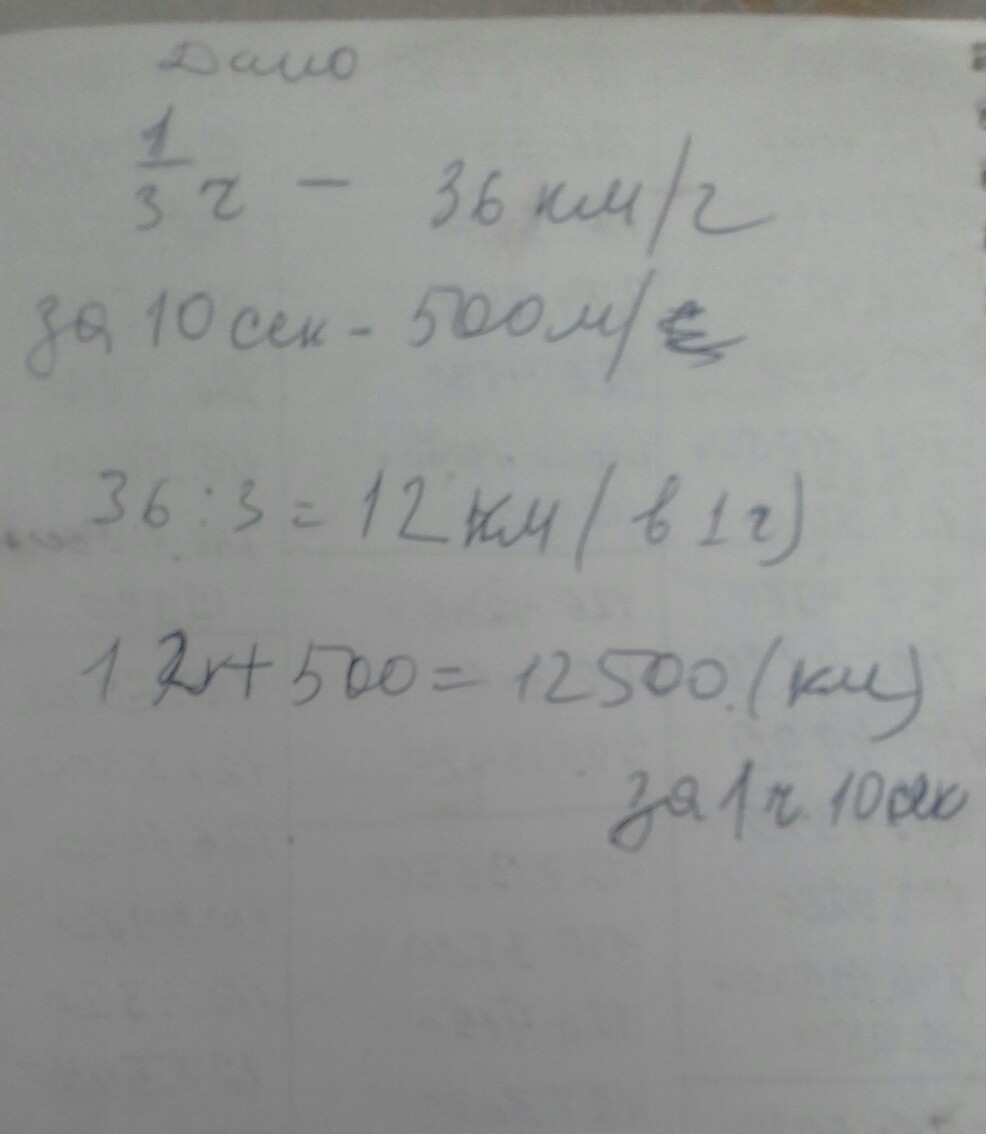 Дано
1/3 ч - 36 км/ч
за 10 сек - 500 м/
36 : 3 = 12 км (в 1 ч)
12 + 500 = 12500. (км)
за 1 ч. 10 сек